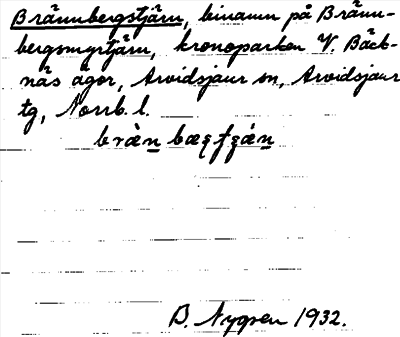 Brännbergstjärn, binamn på Bränn-
bergsmyrtjärn, kronoparken V. Bäck-
näs ägor, Arvidsjaur sn, Arvidsjaur
tg, Norrb. l.
B. Nygren 1932.